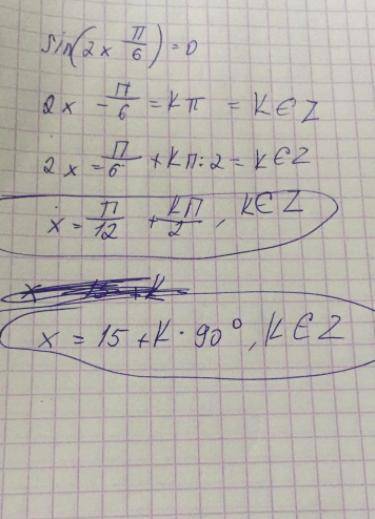 sin(2x π/6)=0
2x - π/6 = kπ = k∈Z
2x = π/6 + kπ:2 = k∈Z
x = π/12 + kπ/2, k∈Z
x = 15 + k · 90°, k∈Z